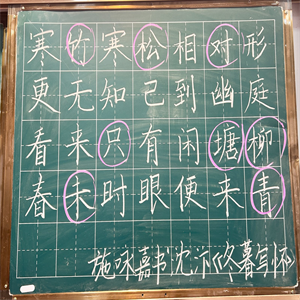 寒竹寒松相对形
更无知己到幽庭
看来只有闲塘柳
春未时眼便来青
施咏嘉书沈沂《冬暮写怀